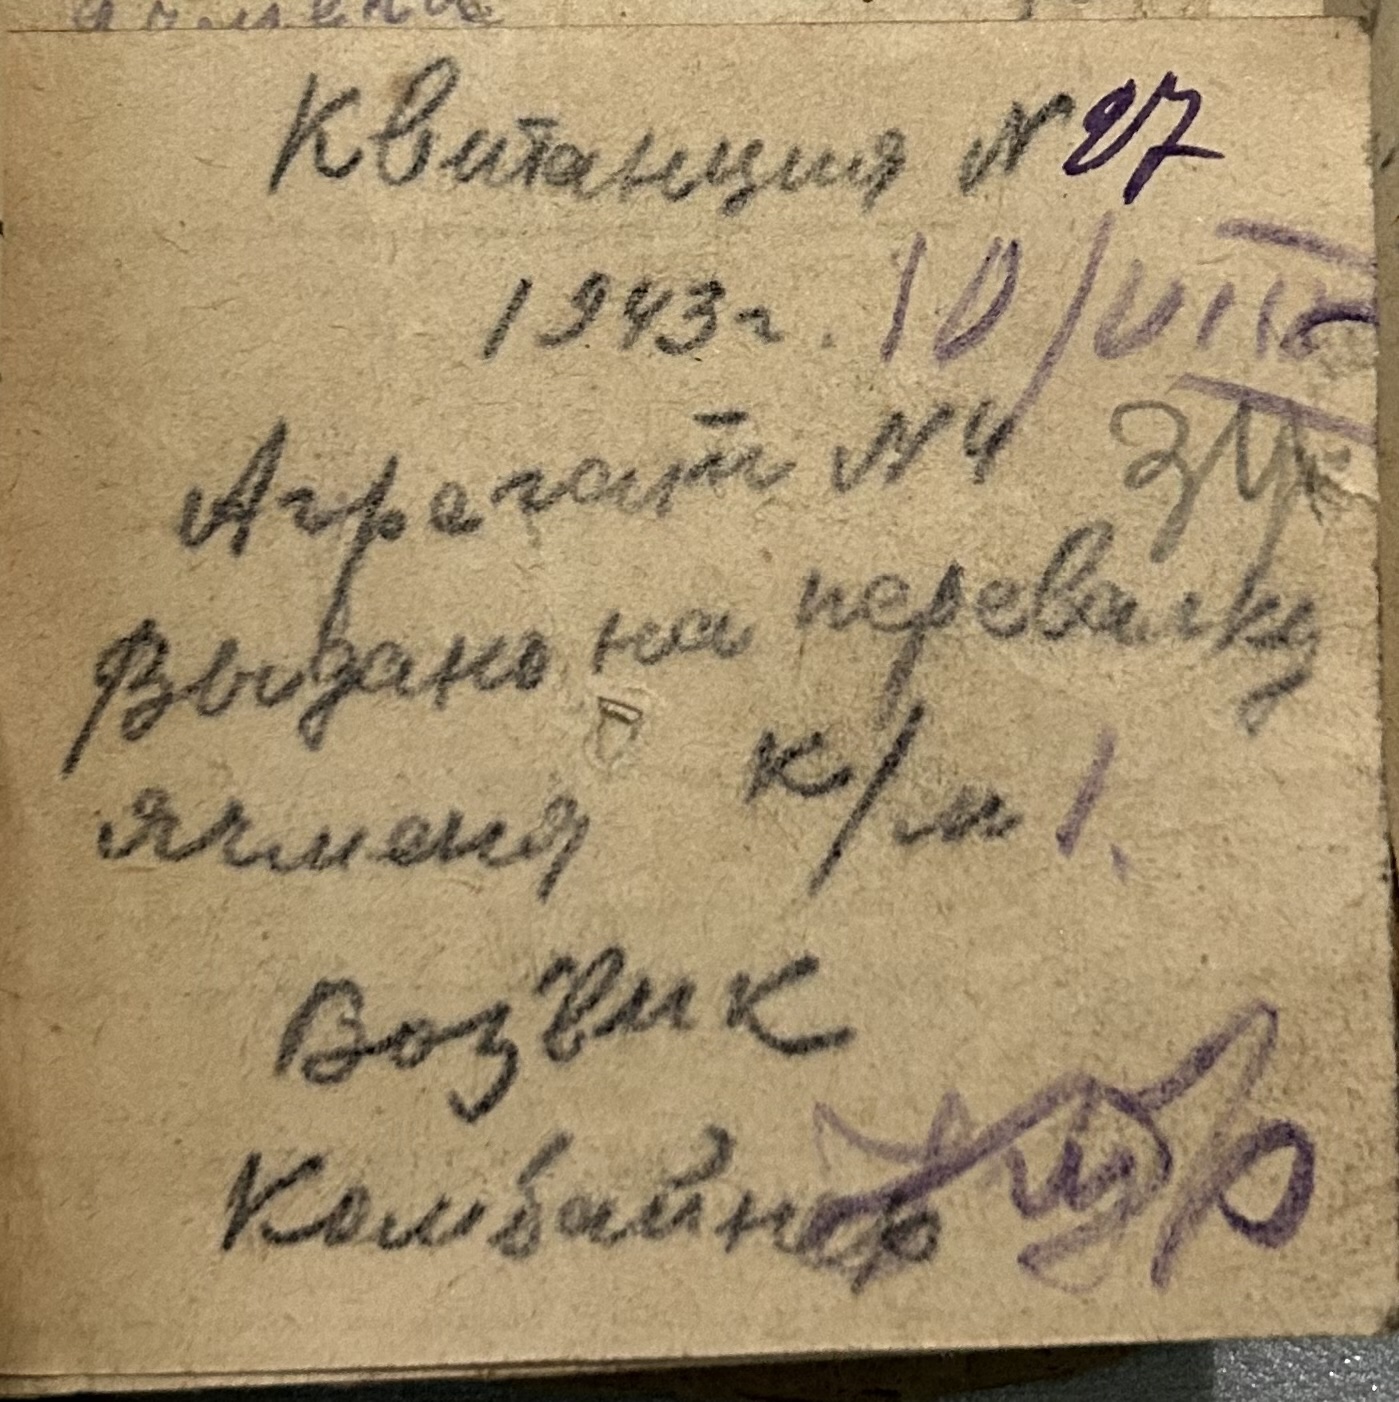 ячменя
Квитанция N 27
1943 г. 10/VIII
Агрегат N 4 34
Выдано на перевалку
ячменя к/м 1.
Возчик
Комбайнер